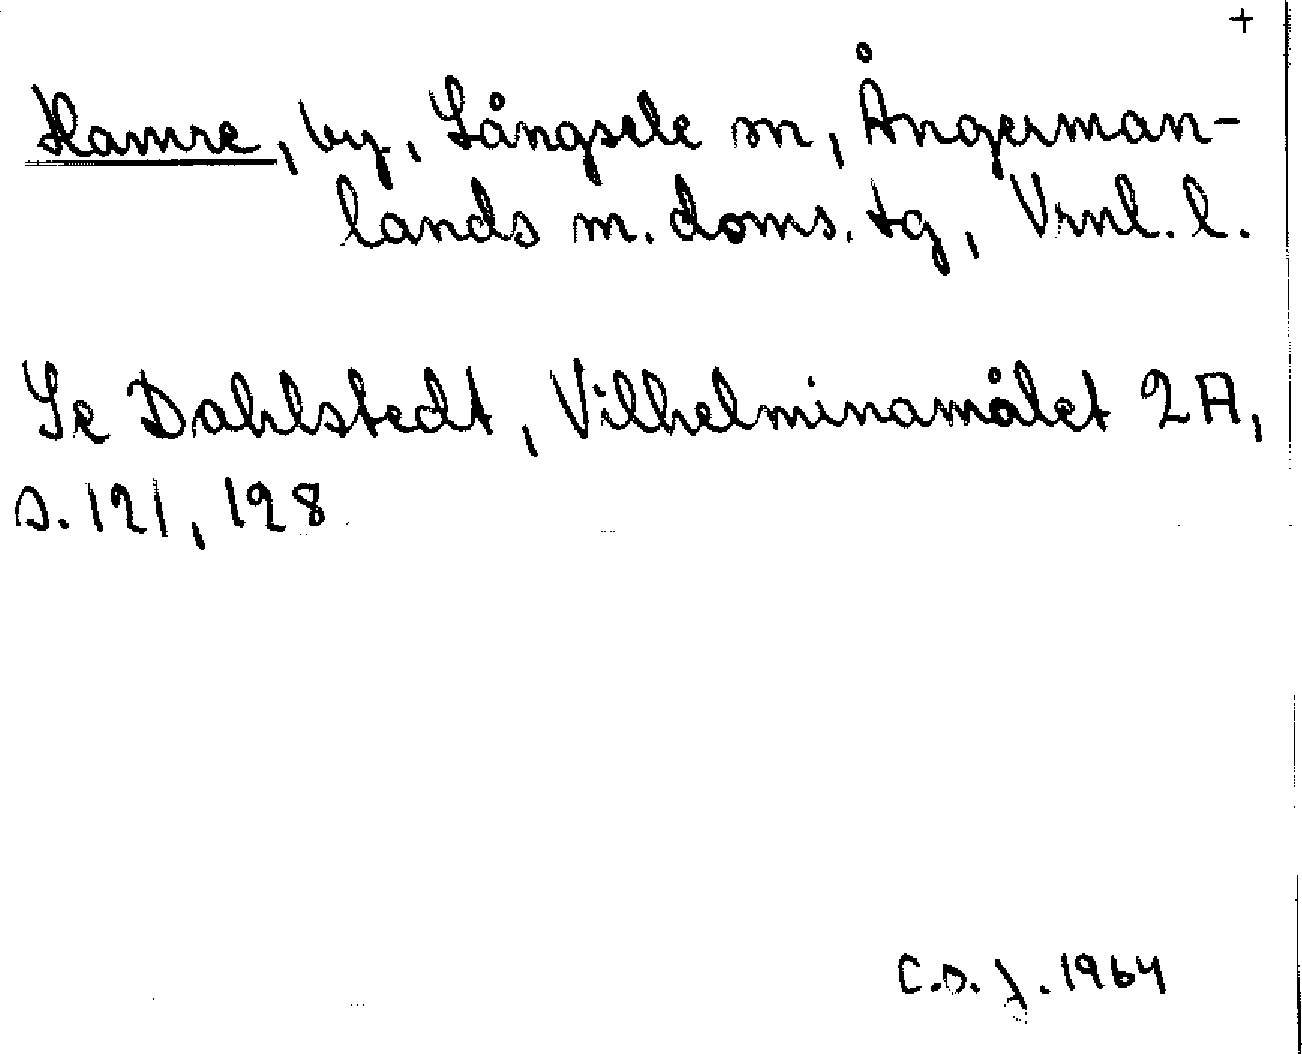 +
Hamre, by, Långsele sn, Ångerman-
lands m. doms. tg, Vrnl. l.
Se Dahlstedt, Vilhelminamålet 2A,
s. 121, 128
C.s. j. 1964